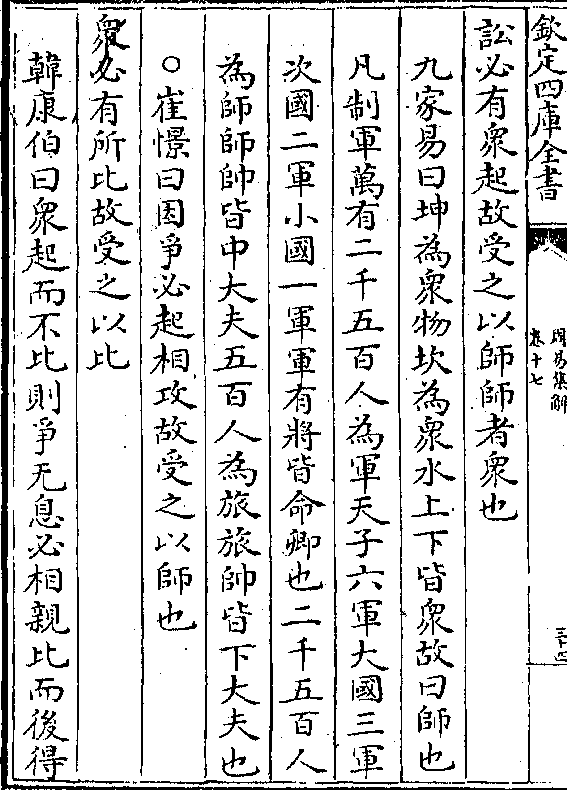 欽定四庫全書
周易集解
卷十七
訟必有衆起故受之以師師者衆也
九家易曰坤為衆物坎為衆水上下皆衆故曰師也
凡制軍萬有二千五百人為軍天子六軍大國三軍
次國二軍小國一軍軍有將皆命卿也二千五百人
為師師帥皆中大夫五百人為旅旅帥皆下大夫也
○崔憬曰因爭必起相攻故受之以師也
衆必有所比故受之以比
韓康伯曰衆起而不比則爭无息必相親比而後得